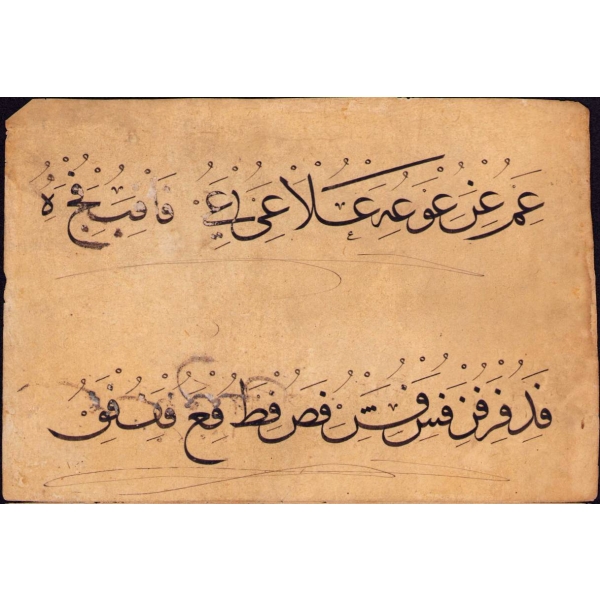 عم عن عو عه علا عى عے فا فب فج فه
فد فر فز فس فش فص فط فع فف فق